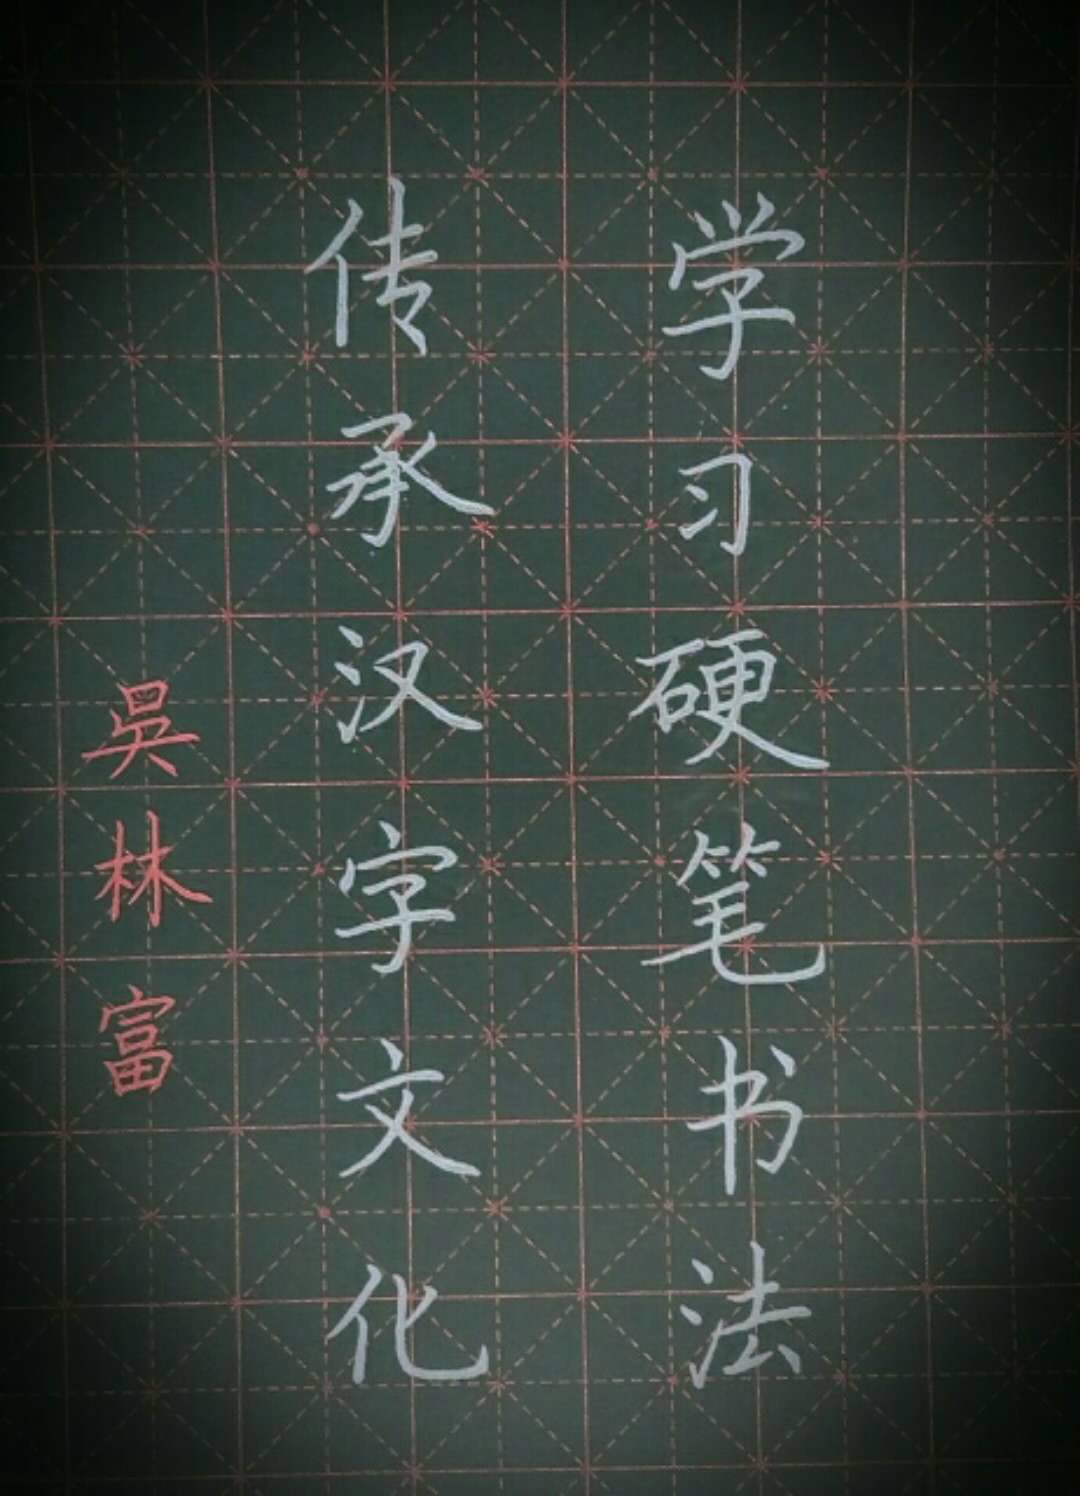 学习硬笔书法
传承汉字文化
吳林富